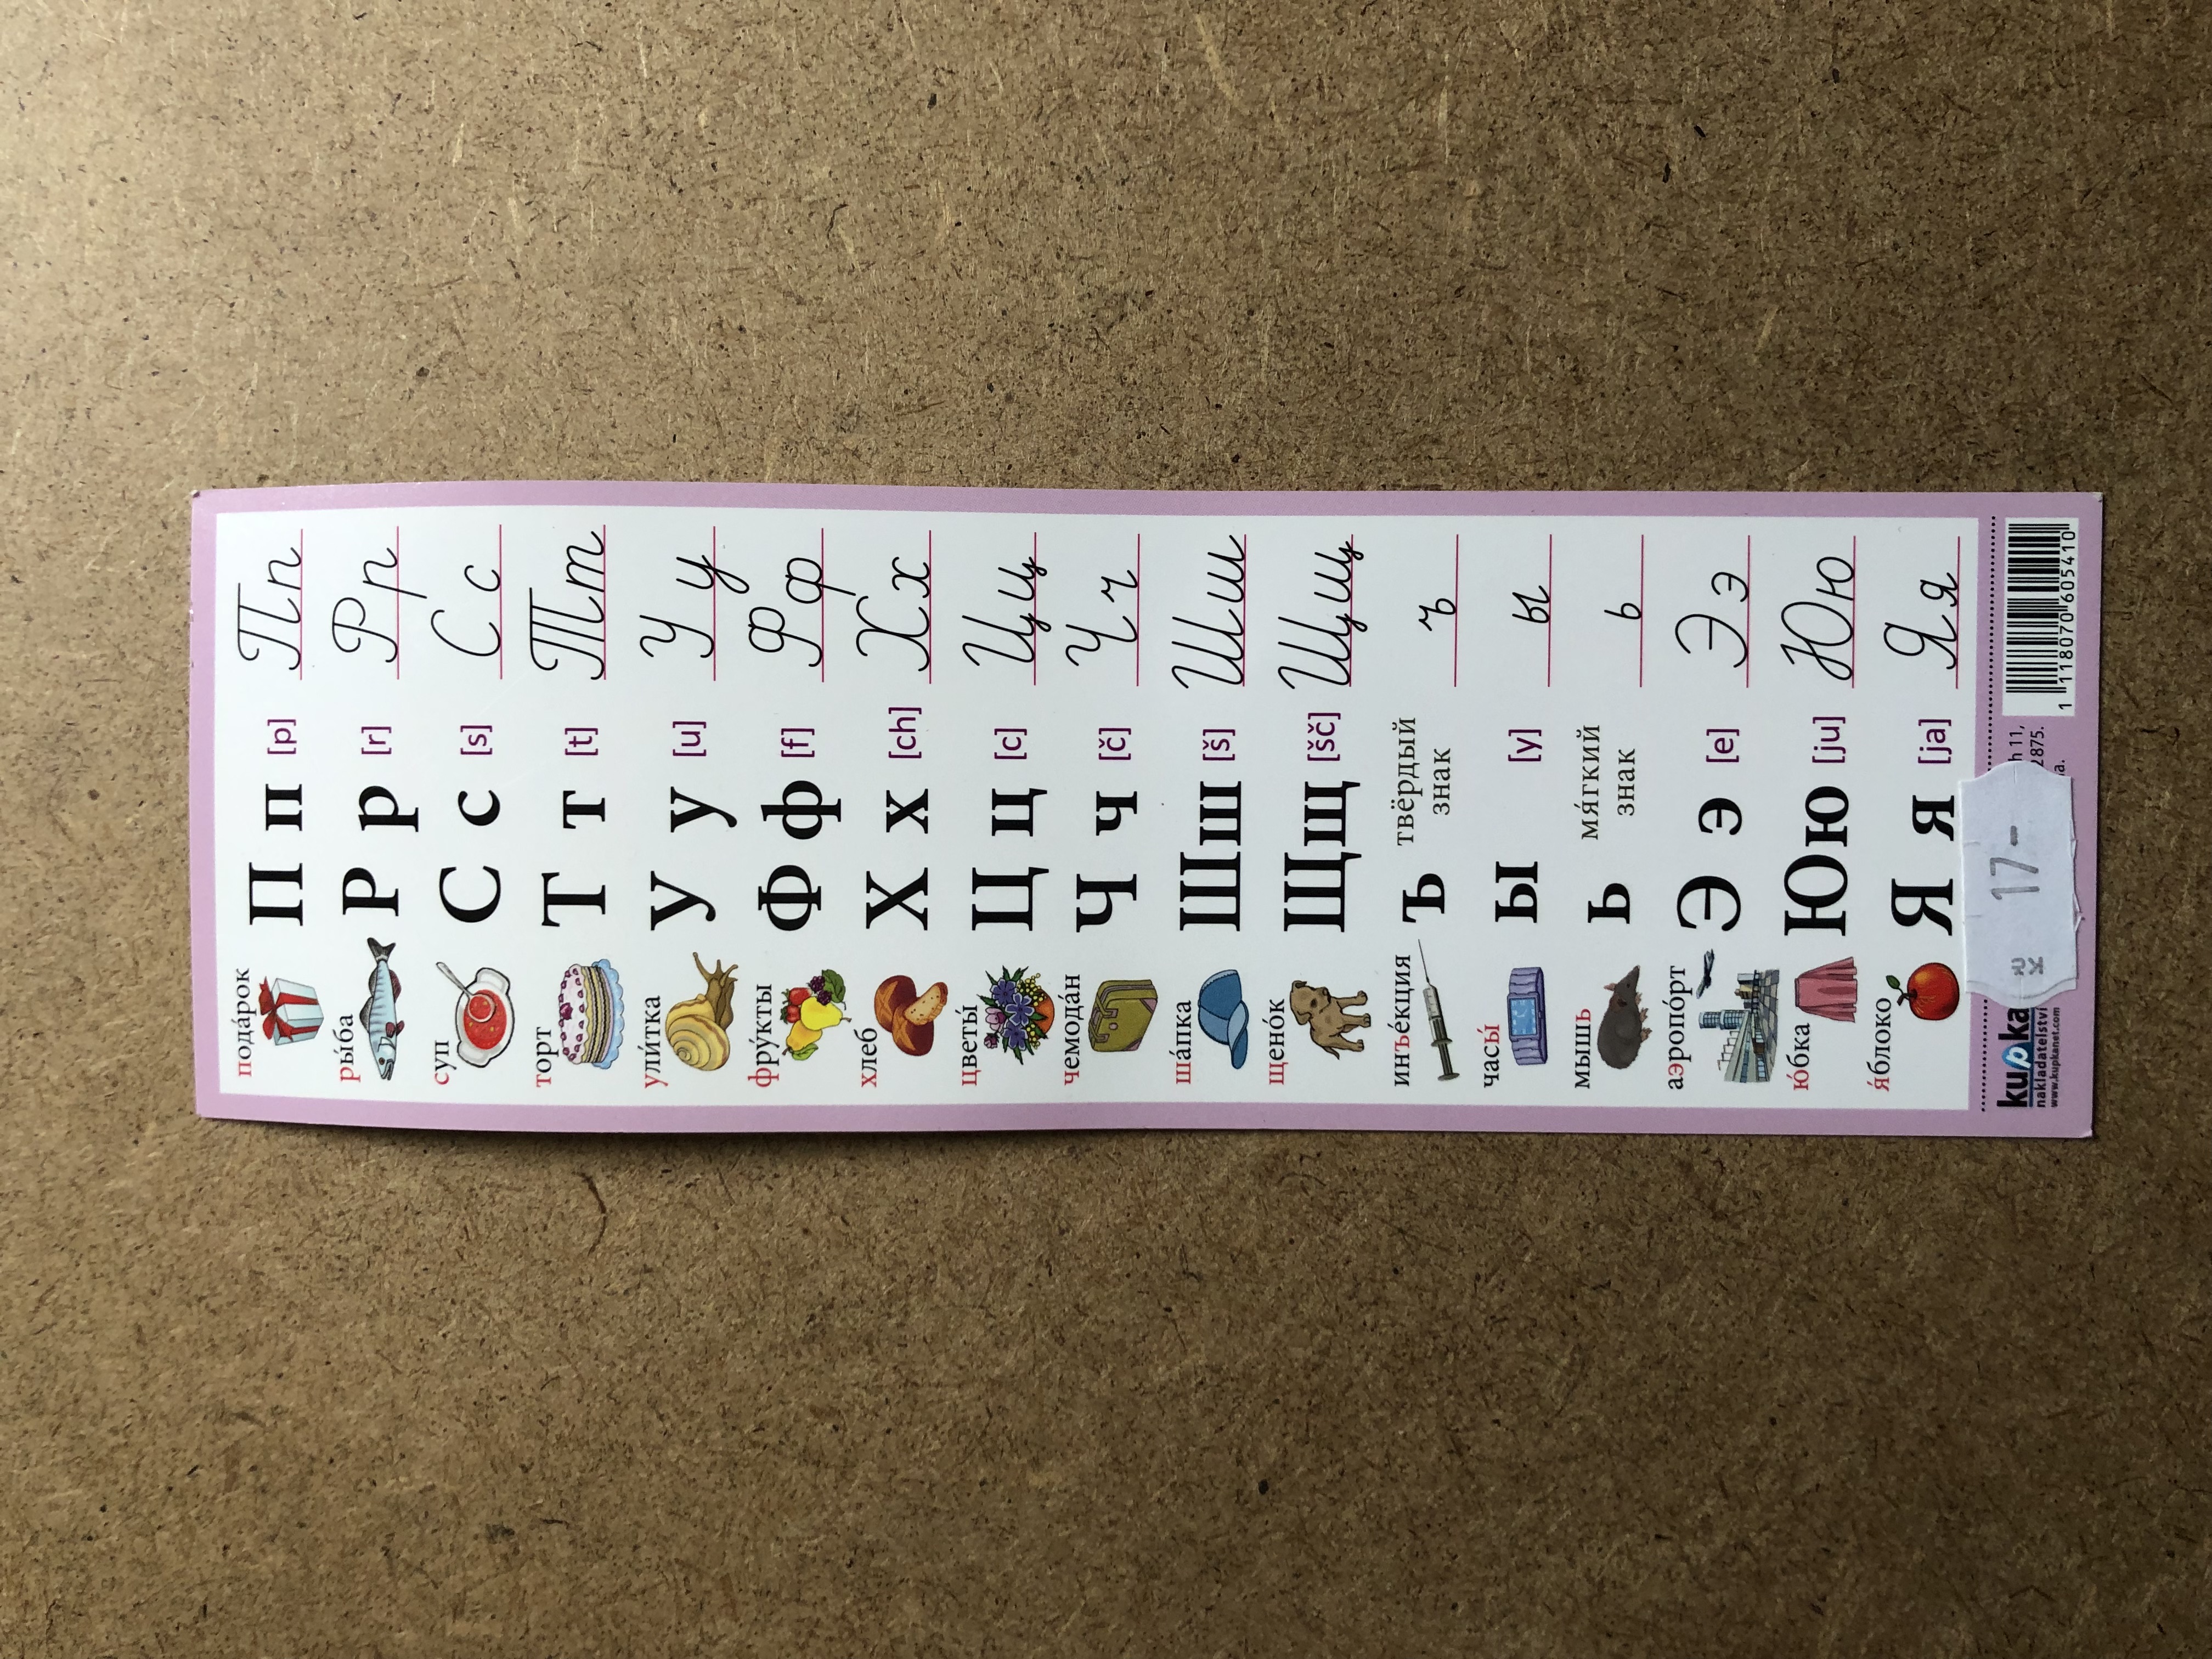 пода́рок П п [p] П п
ры́ба Р р [r] Р р
суп С с [s] С с
торт Т т [t] Т т
ули́тка У у [u] У у
фру́кты Ф ф [f] Ф ф
хлеб Х х [ch] Х х
цветы́ Ц ц [c] Ц ц
чемода́н Ч ч [č] Ч ч
ша́пка Ш ш [š] Ш ш
щено́к Щ щ [šč] Щ щ
инъе́кция Ъ твёрдый знак ъ
часы́ Ы [y] ы
мышь Ь мя́гкий знак ь
аэропо́рт Э э [e] Э э
ю́бка Ю ю [ju] Ю ю
я́блоко Я я [ja] Я я
kupka
nakladatelství
www.kupkanet.com
Kč 17-
11,
2875.
1 118070 605410